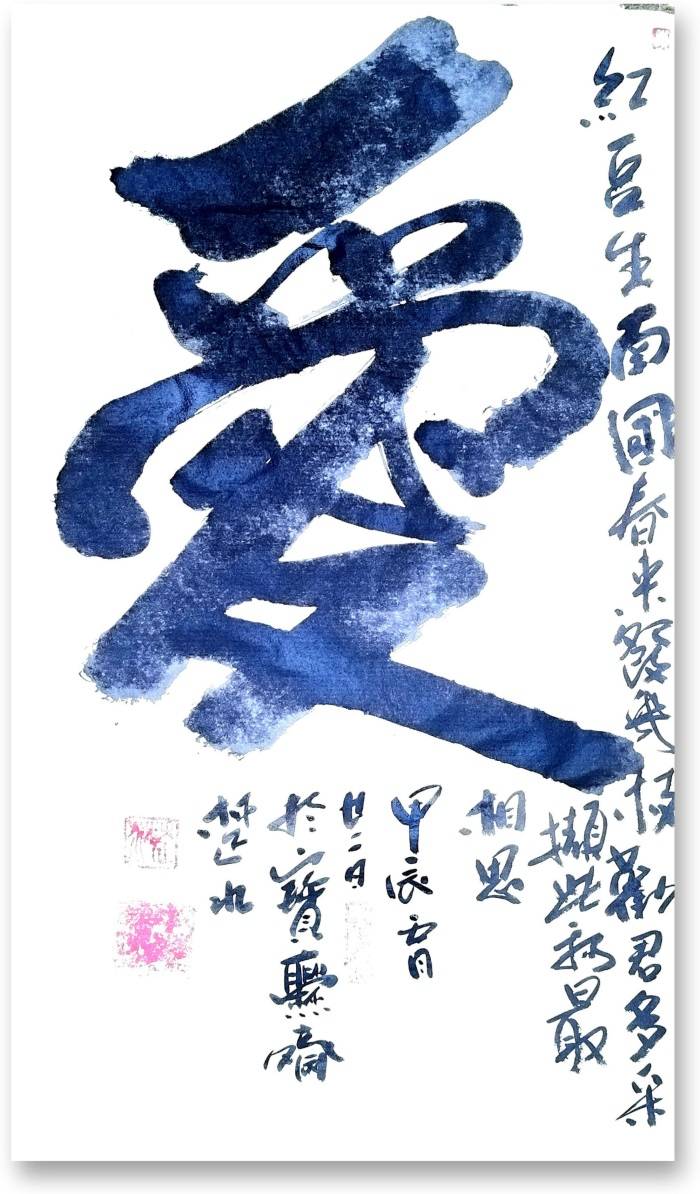 愛
紅豆生南國春來發幾枝勸君多采
擷此物最
相思
甲辰五月
廿二日
於寶齋
楚水